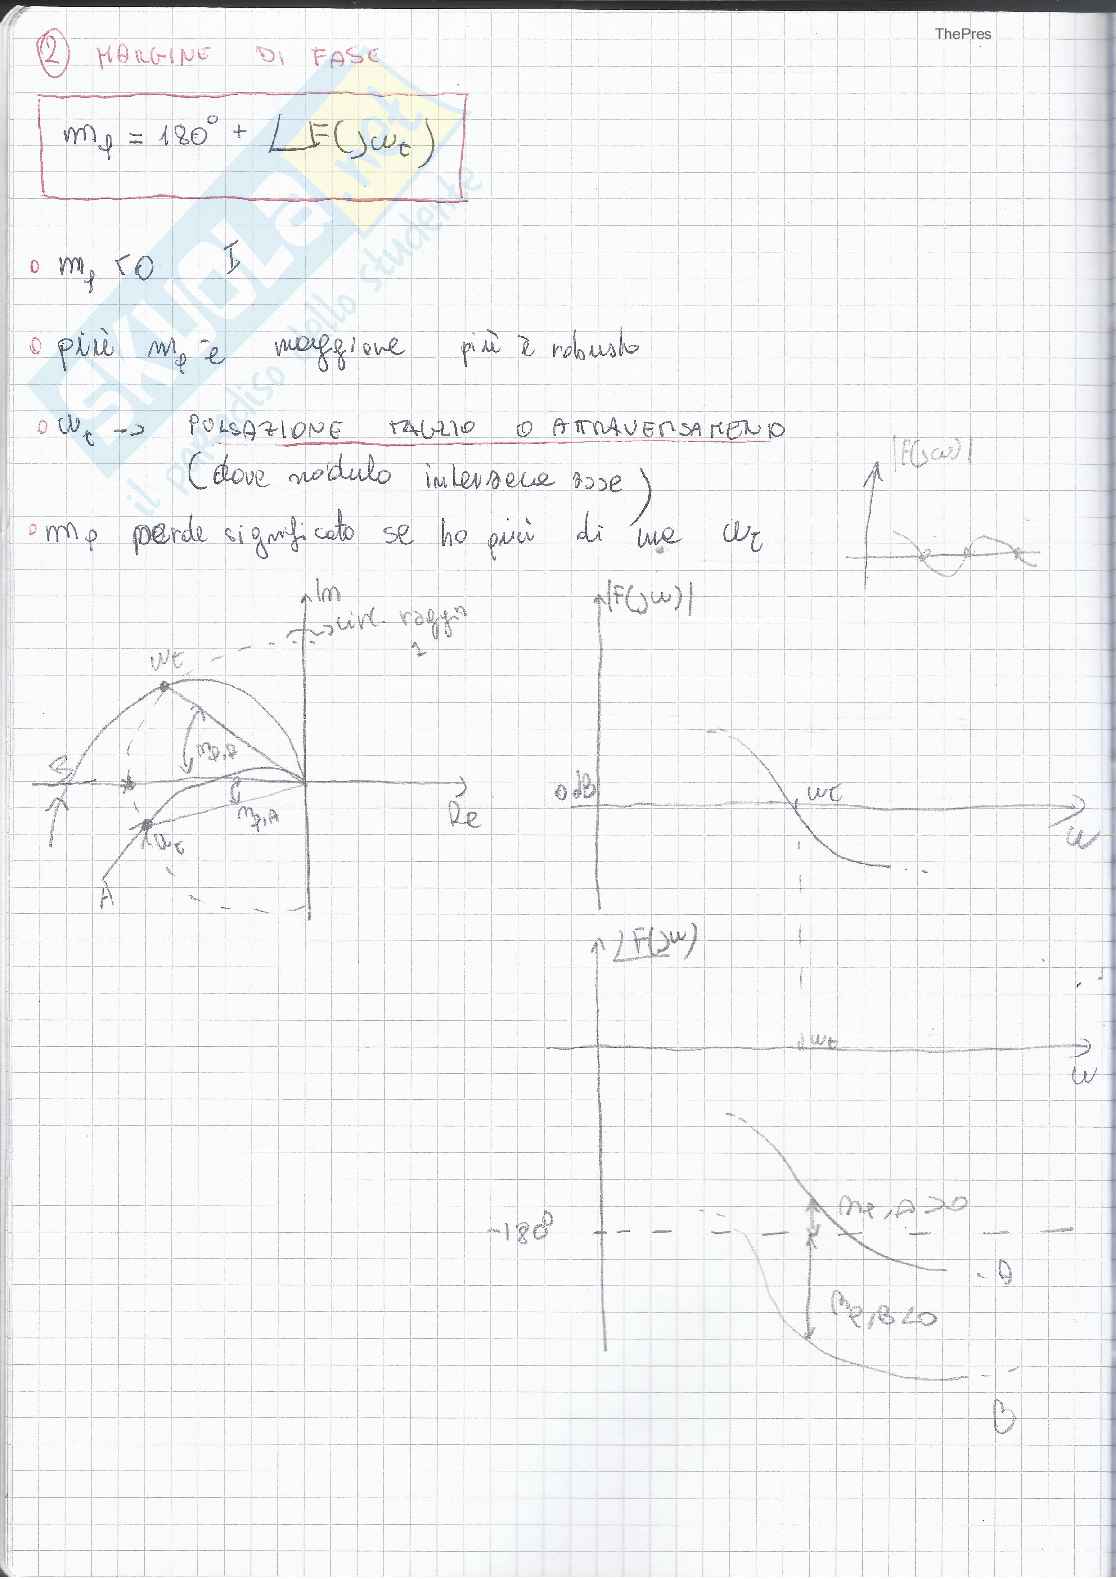 ThePres
② MARGINE DI FASE
mφ = 180° + ∠F(jωt)
mφ < 0 I
più mφ è maggiore più è robusto
ωt → PULSAZIONE TAGLIO O ATTRAVERSAMENTO
(dove modulo interseca asse)
mφ perde significato se ho più di una ωt
|F(jω)|
Im
circ. raggio 1
ωt
mφ,B
B
Re
mφ,A
ωt
A
|F(jω)|
0 dB
ωt
ω
∠F(jω)
ωt
ω
-180°
mφ,A > 0
A
mφ,B < 0
B
SKUOLA.net
il paradiso dello studente